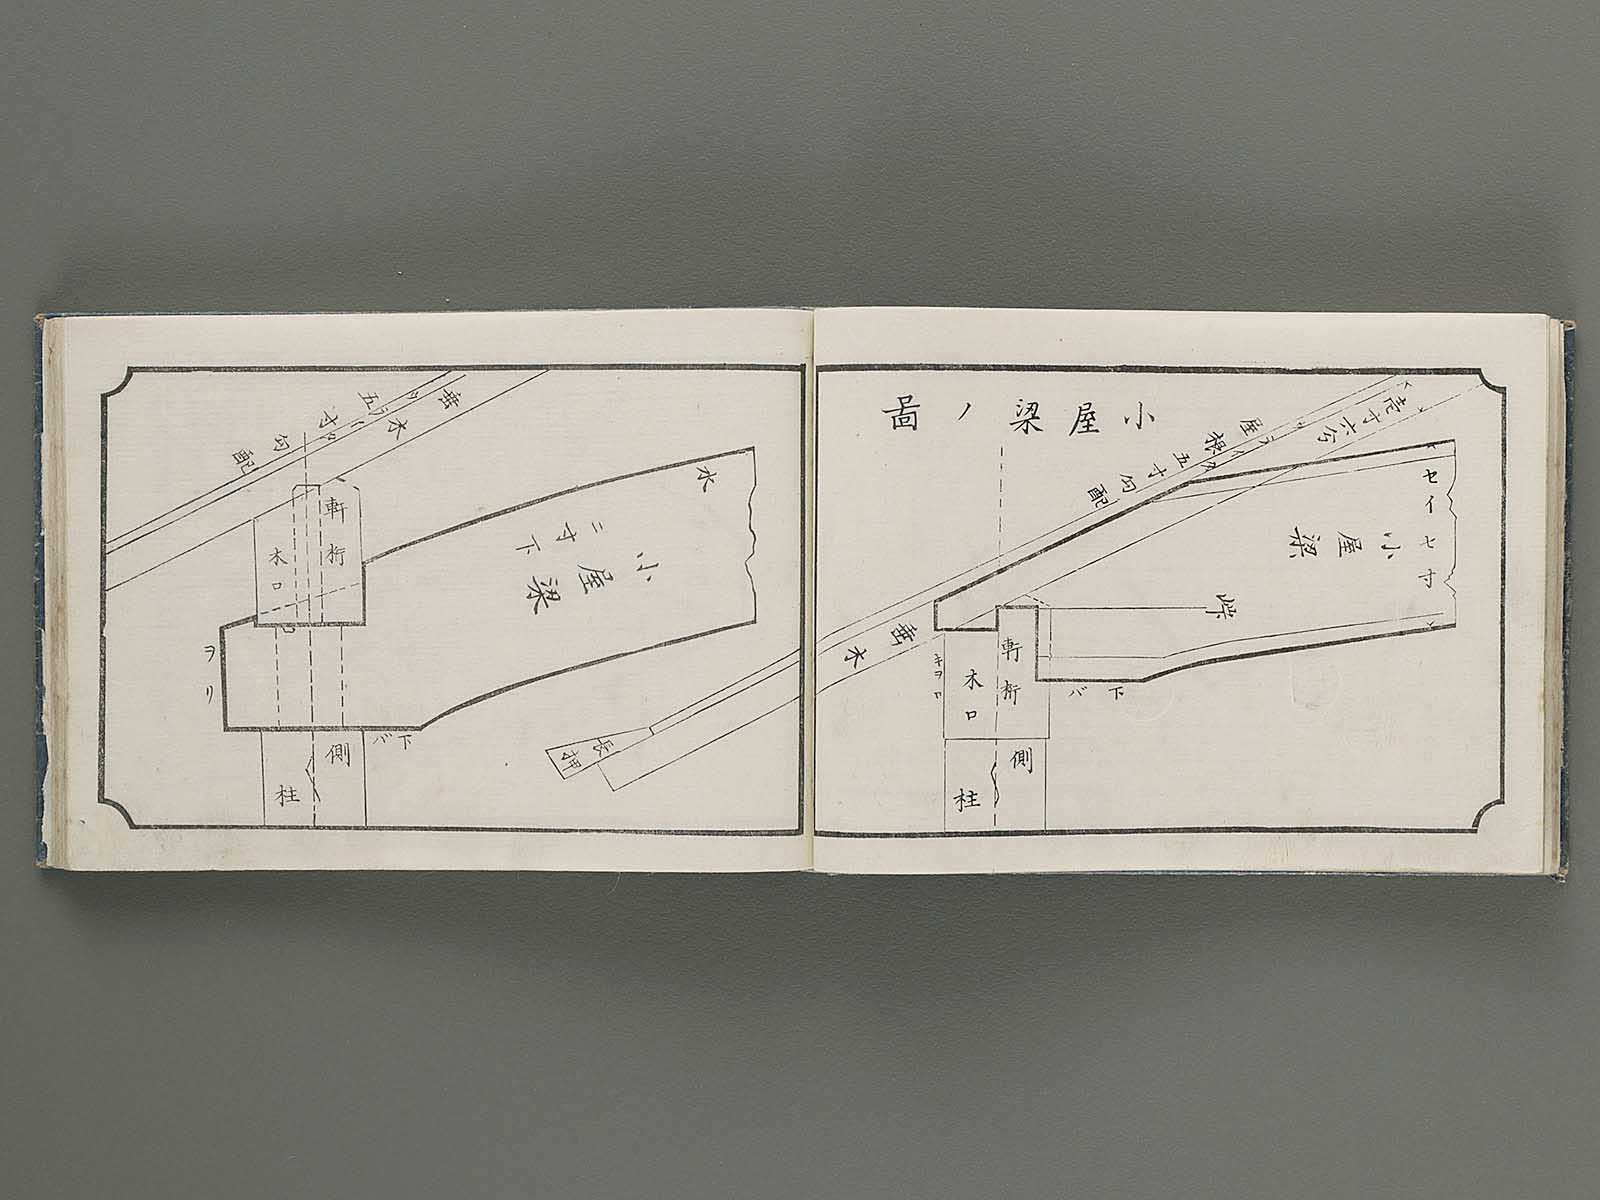 小屋梁ノ圖
壱寸六分
屋根
五寸勾配
セイ七寸
小屋梁
垂木
軒桁
木口
下バ
側
柱
長押
垂木
五寸
勾配
水
小屋梁
二寸下
軒桁
木口
ヲリ
下バ
側
柱